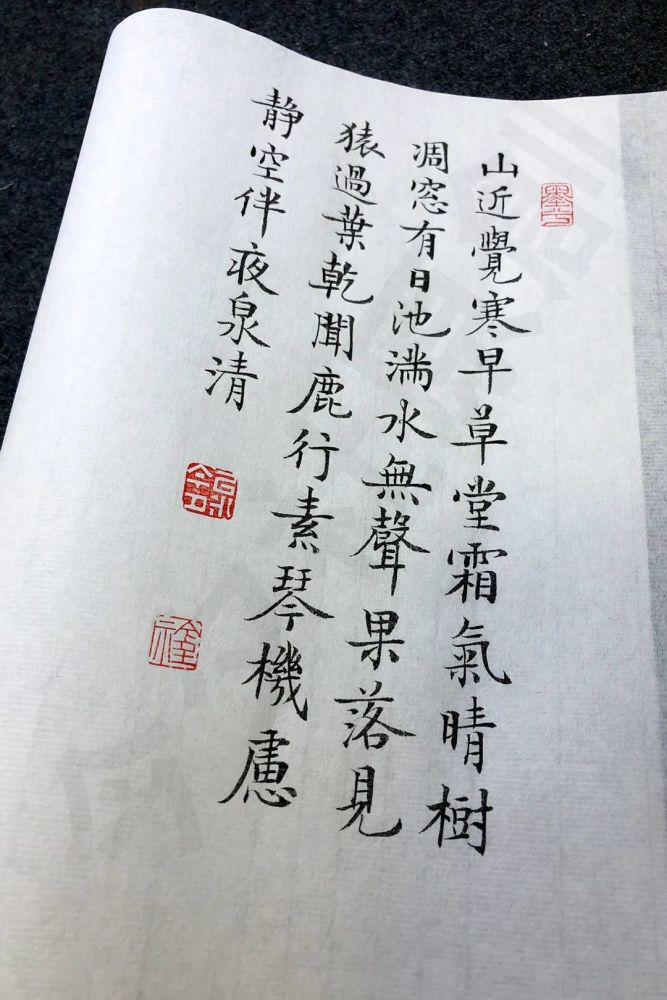 山近覺寒早草堂霜氣晴樹
凋窓有日池滿水無聲果落見
猿過葉乾聞鹿行素琴機慮
靜空伴夜泉清